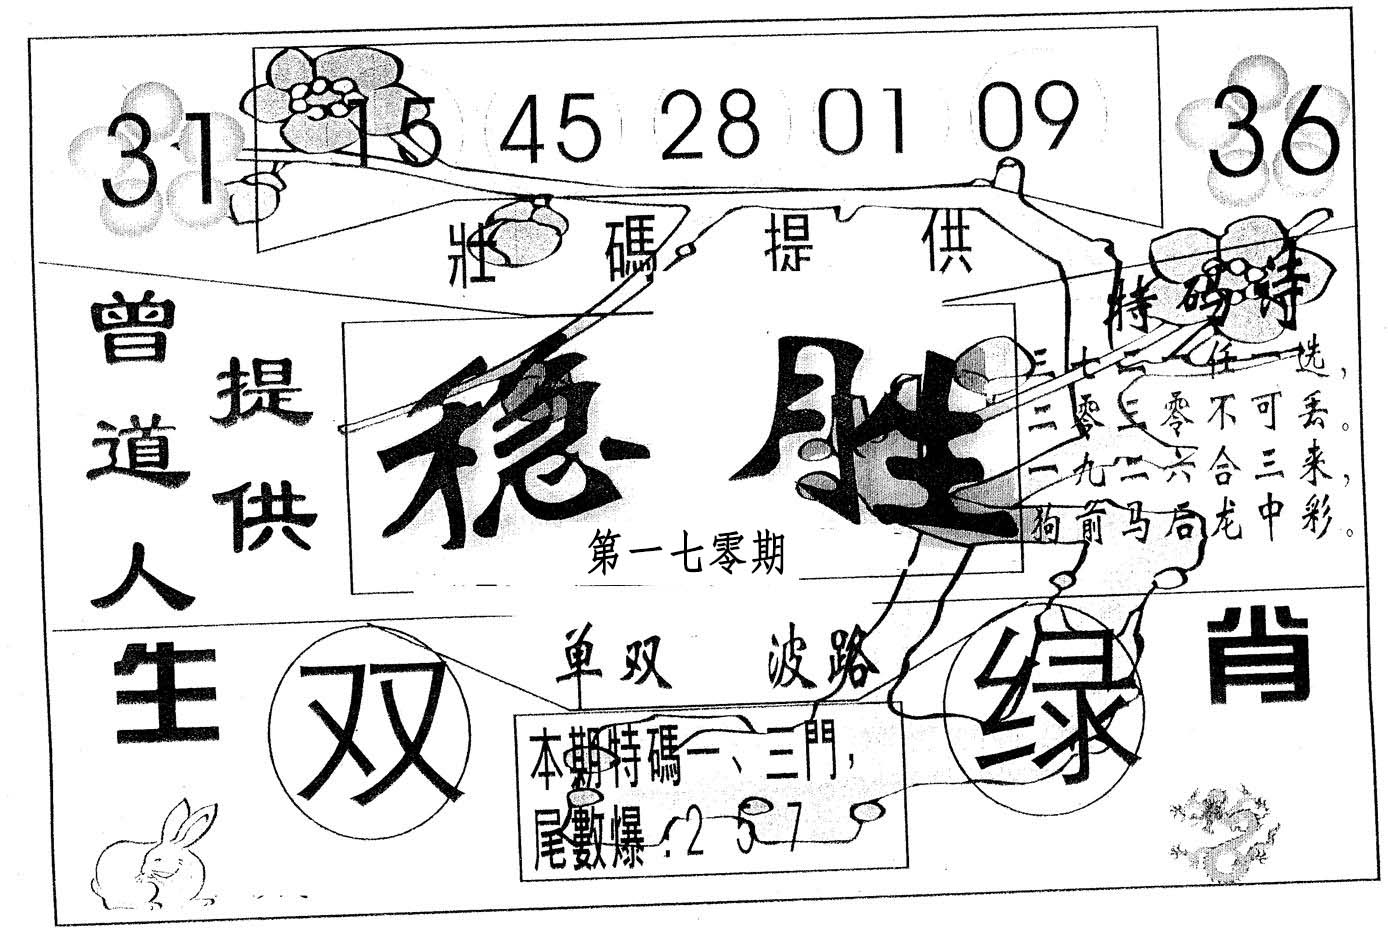 31 15 45 28 01 09 36
壯碼提供
曾道人
提供
稳胜
第一七零期
特码诗
三七二一任一选，
二零三零不可丢。
一九二六合三来，
狗前马后龙中彩。
单双 波路
生
双
绿
肖
本期特碼一、三門，
尾數爆：2 5 7